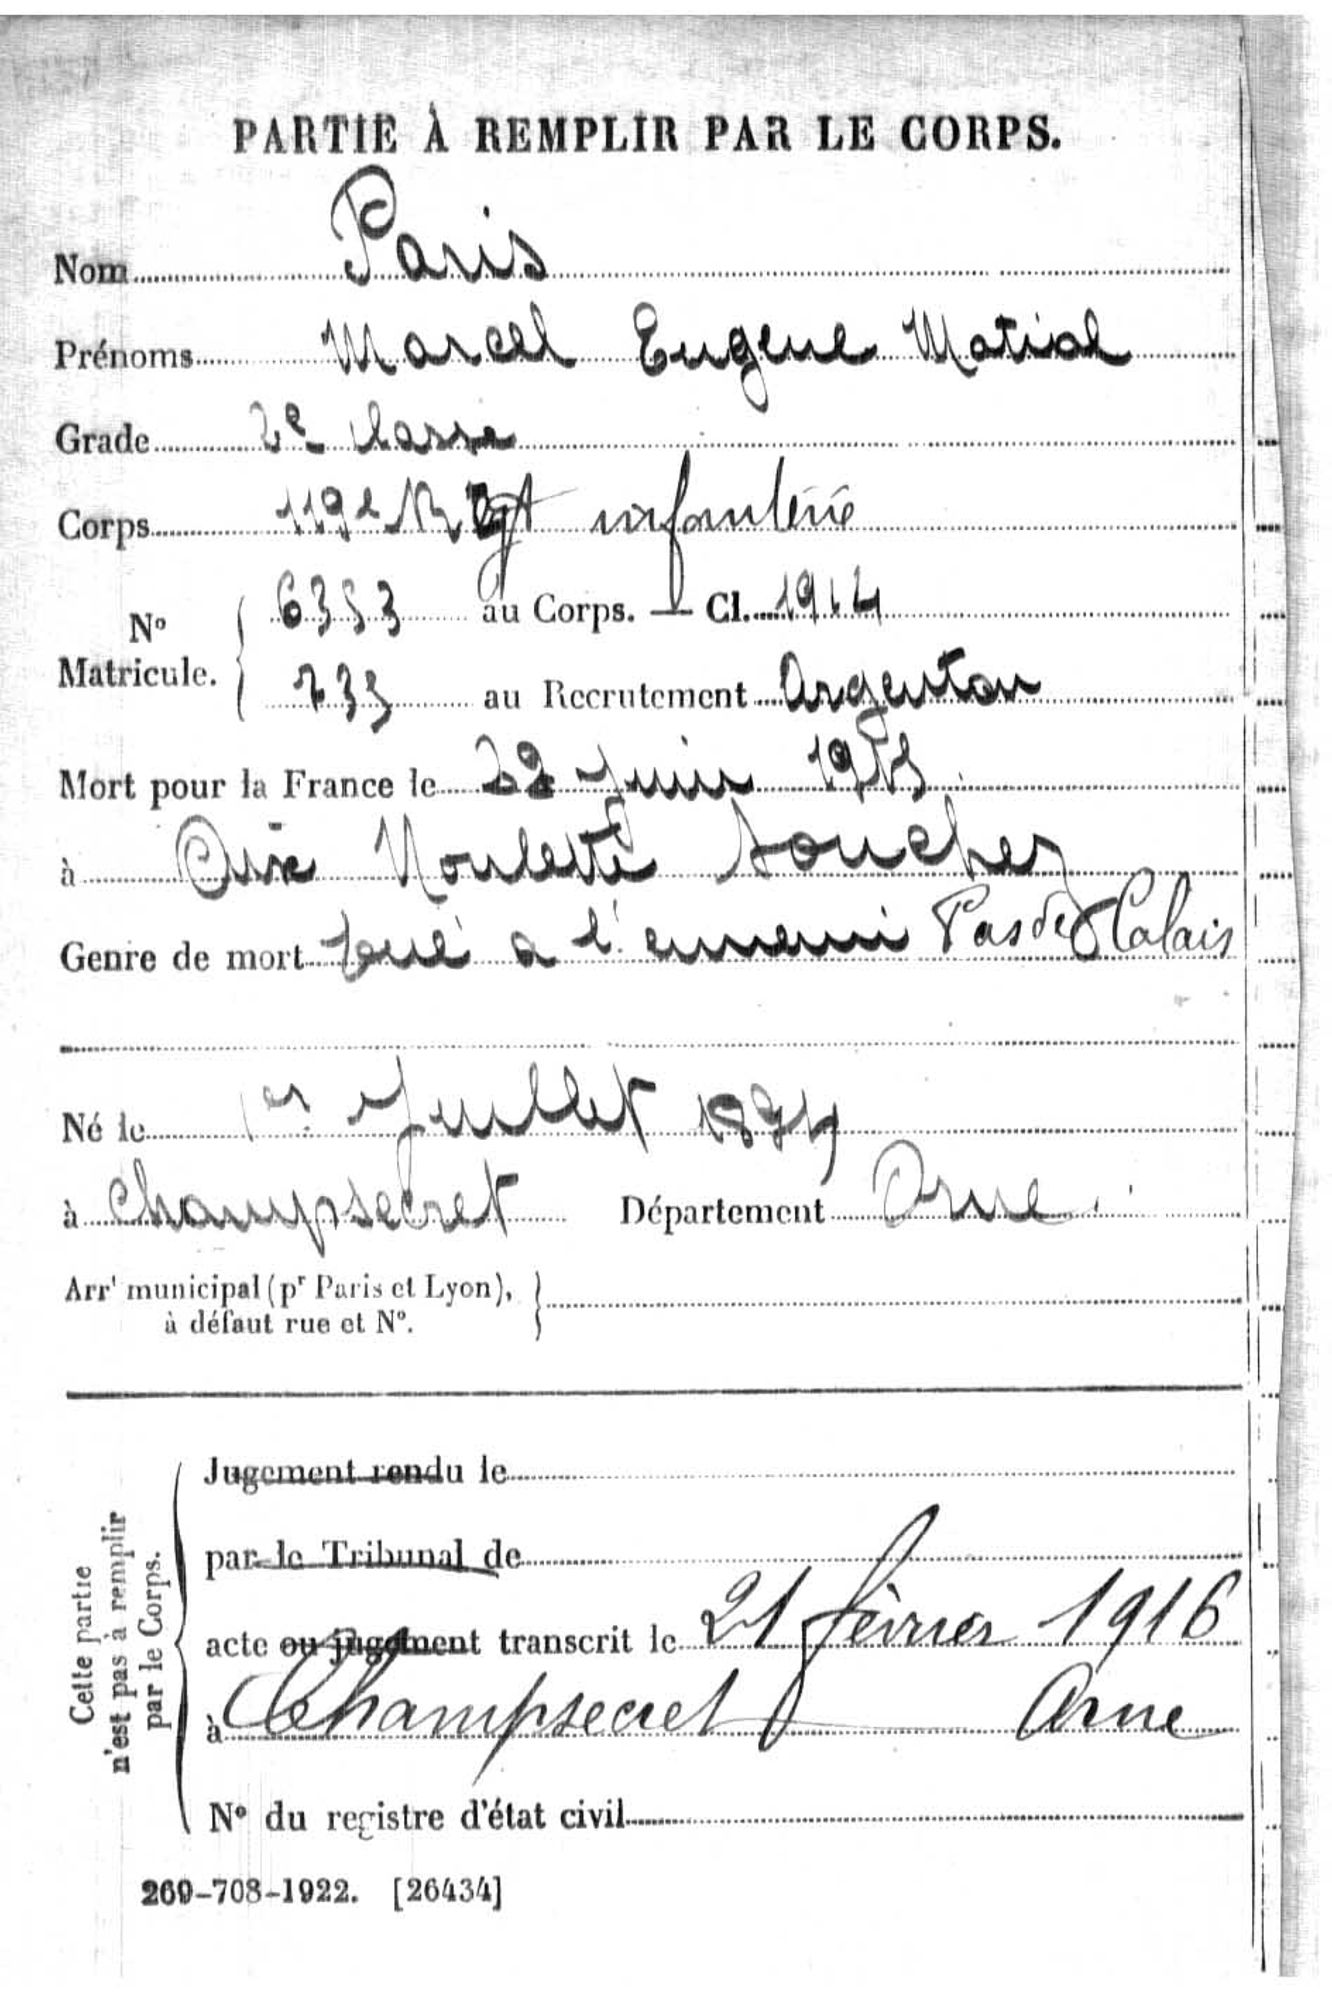 PARTIE À REMPLIR PAR LE CORPS.
Nom Paris
Prénoms Marcel Eugène Matial
Grade 2e classe
Corps 119e Rgt infanterie
6353 au Corps. — Cl. 1914
No
Matricule.
233 au Recrutement Argentan
Mort pour la France le 22 Juin 1915
à Aix Noulette Souchez
Genre de mort tué à l'ennemi Pas de Calais
Né le 1er Juillet 1894
à Champsecret Département Orne
Arrt municipal (pr Paris et Lyon),
à défaut rue et No.
Cette partie
n'est pas à remplir
par le Corps.
Jugement rendu le
par le Tribunal de
acte ou jugement transcrit le 21 février 1916
à Champsecret Orne
No du registre d'état civil
269-708-1922. [26434]